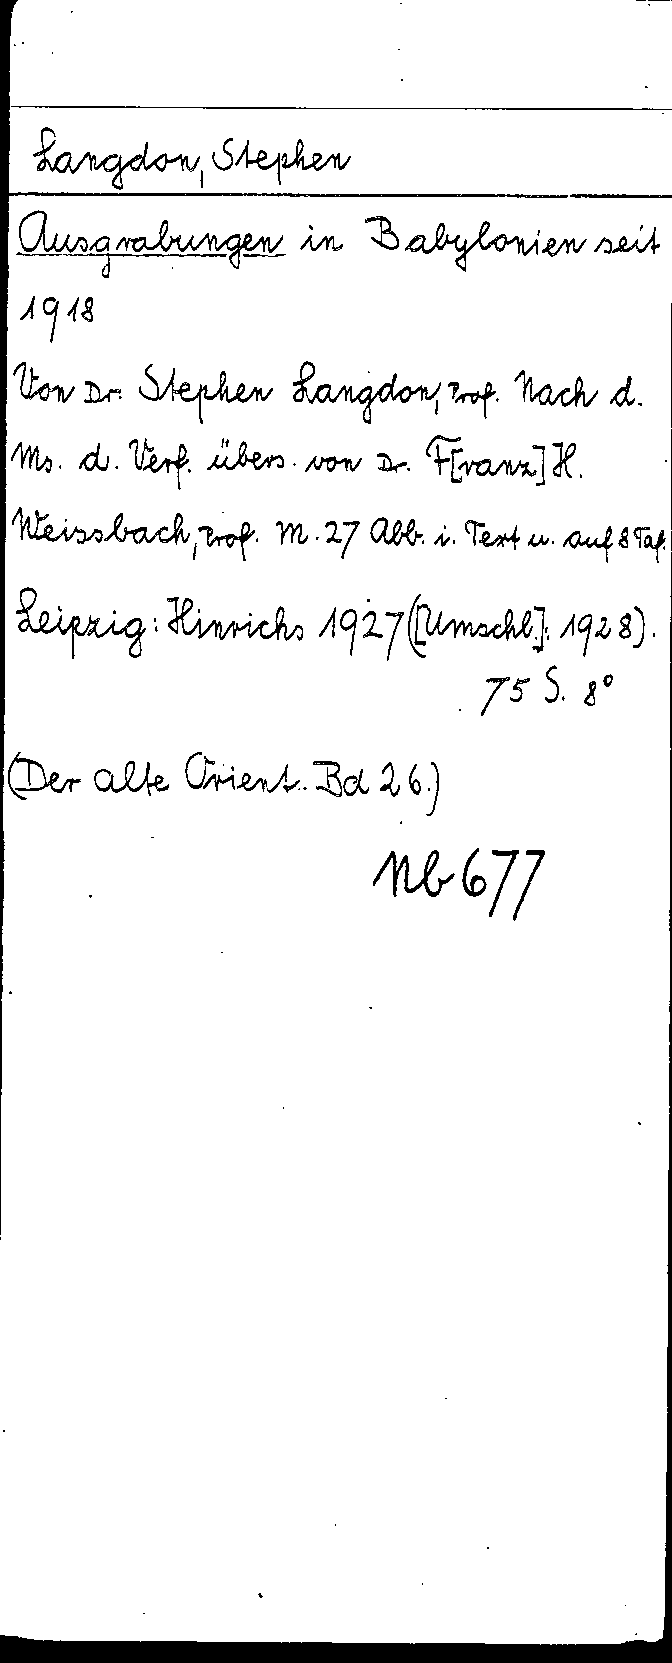 Langdon, Stephen
Ausgrabungen in Babylonien seit
1918
Von Dr. Stephen Langdon, Prof. Nach d.
Ms. d. Verf. übers. von Dr. F[ranz] H.
Weissbach, Prof. M. 27 Abb. i. Text u. auf 8 Taf.
Leipzig: Hinrichs 1927 ([Umschl.]: 1928).
75 S. 8°
(Der alte Orient. Bd 26.)
Nb 677